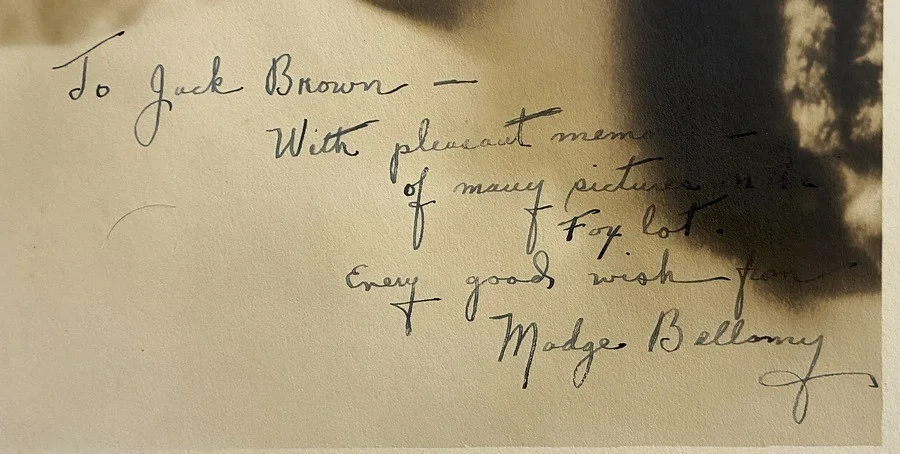 To Jack Brown —
With pleasant memo —
of many pictures in the
Fox lot.
Every good wish from
Madge Bellamy